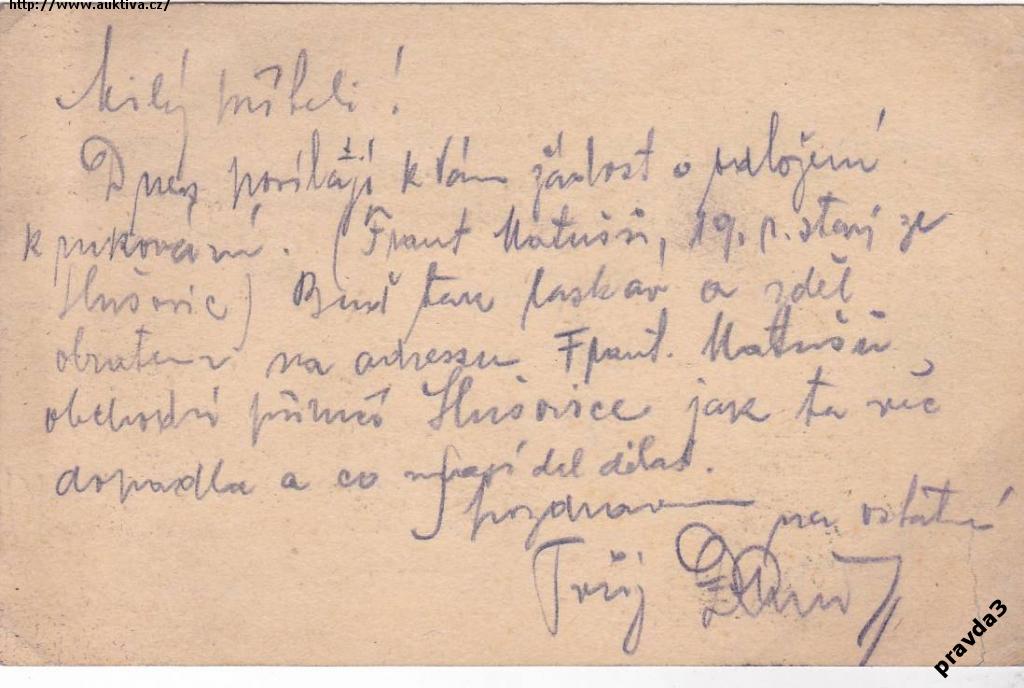 http://www.auktiva.cz/
Milý příteli!
Dnes posílají k Vám žádost o odložení
k rukování. (Frant Matušů, 19. r. starý ze
Slušovic) Buď tak laskav a zděl
obratem na adressu Frant. Matušů,
obchodní Slušovice jak ta věc
dopadla a co mají dál dělat.
S pozdravem na ostatní
Tvůj
pravda3